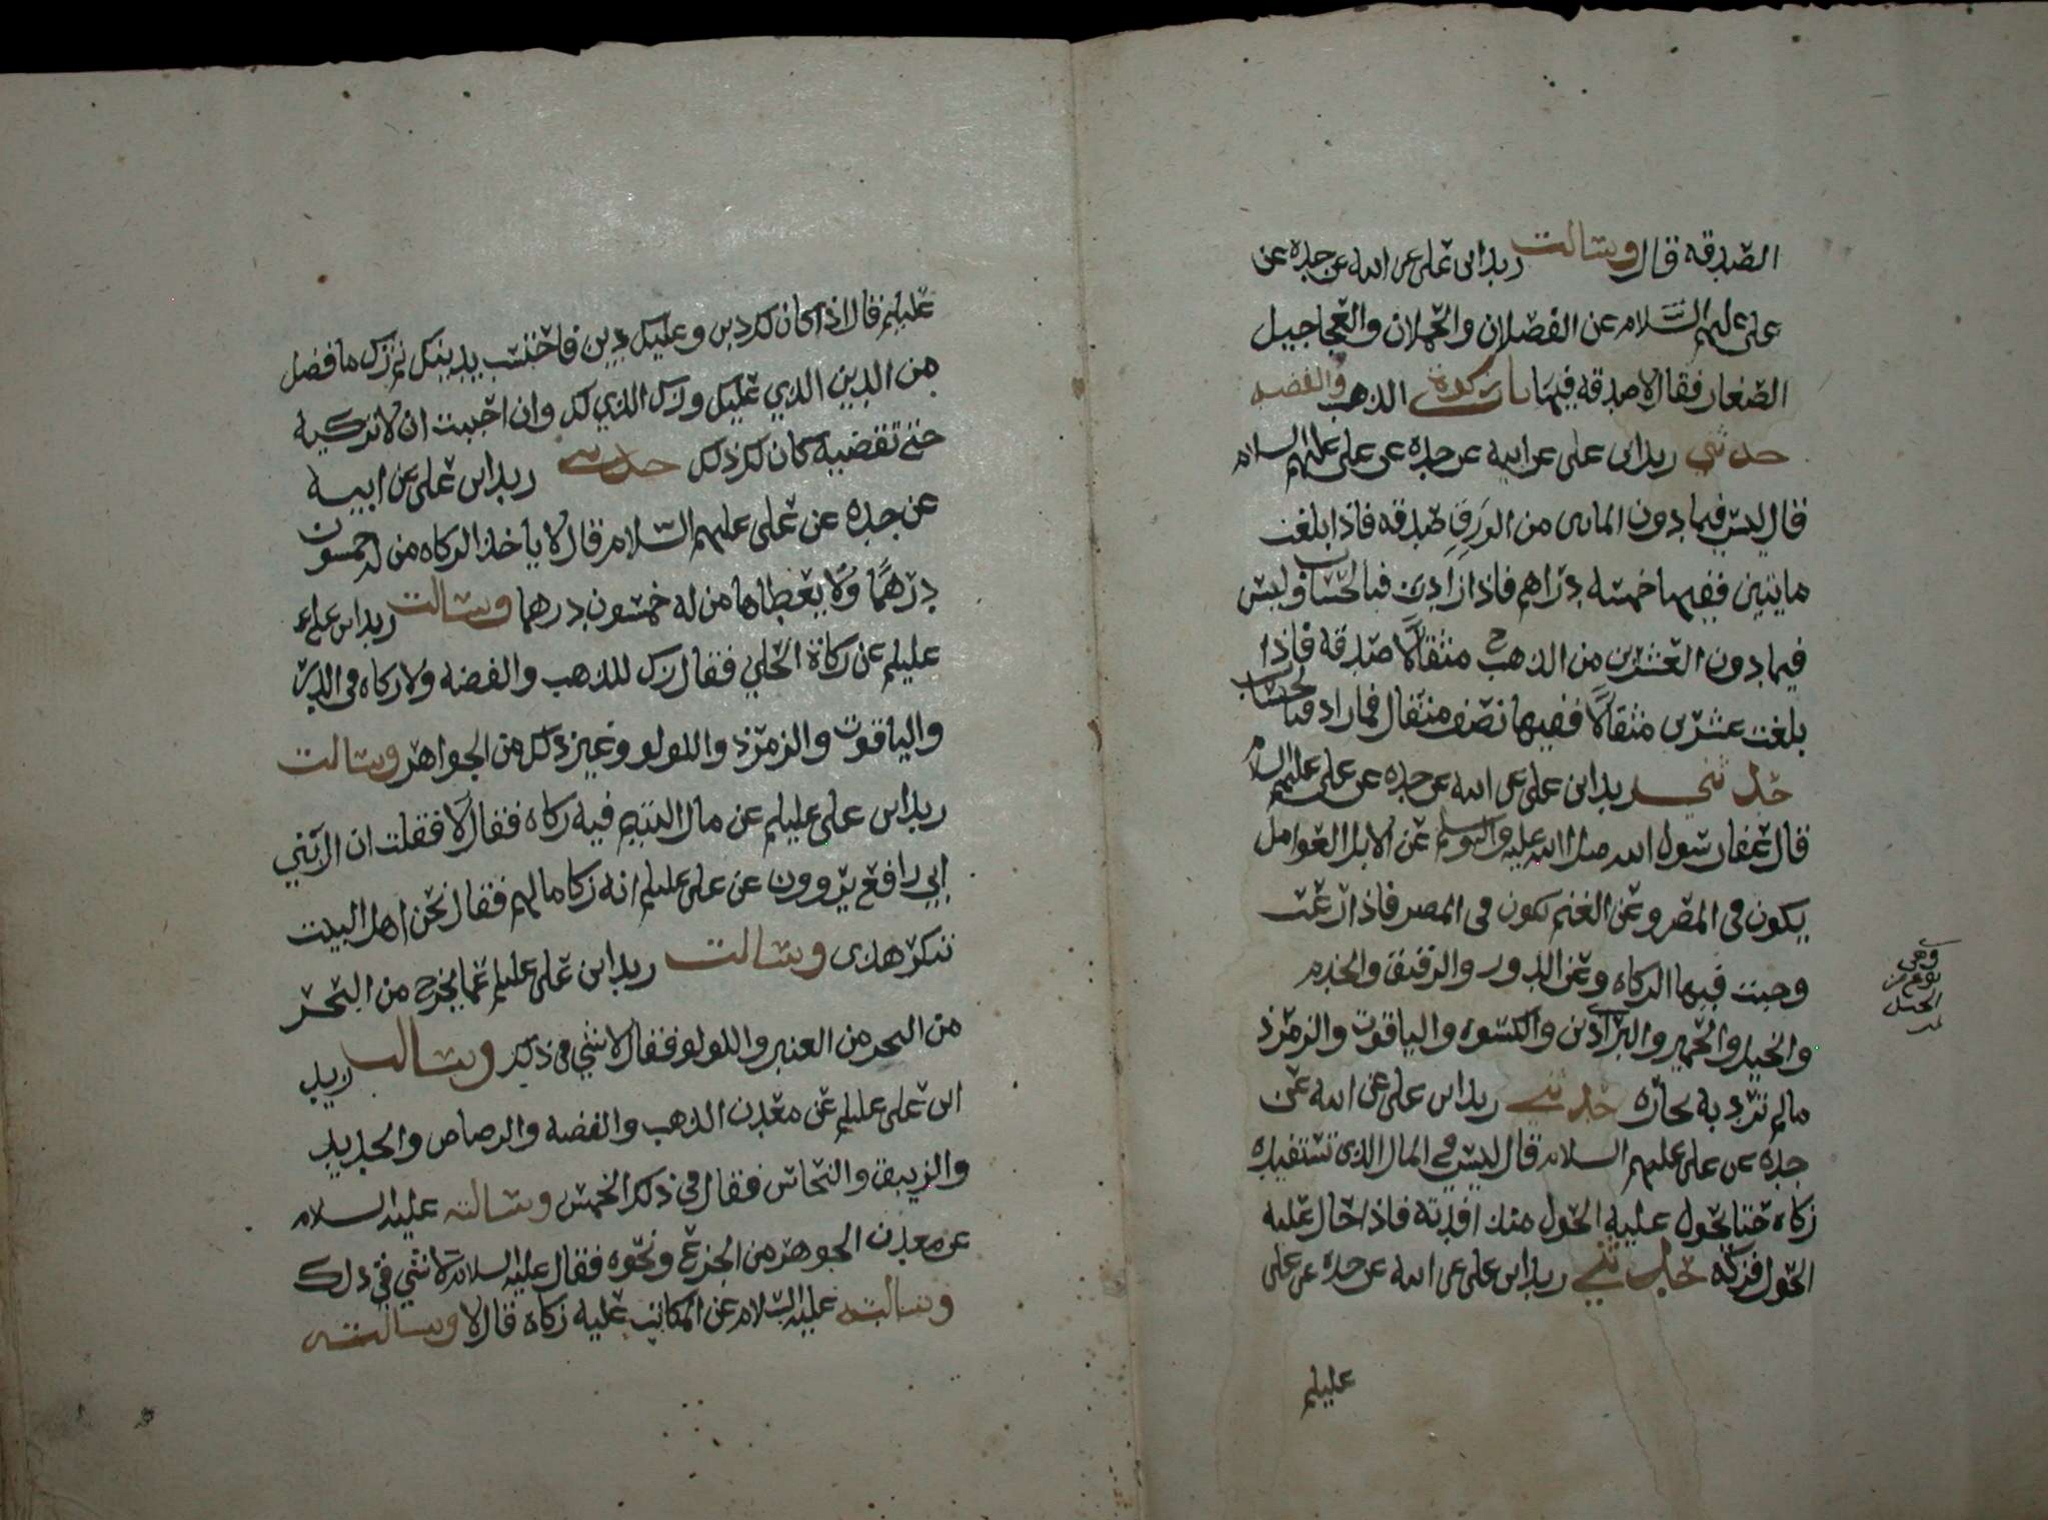 الصدقه قال وسالت زيد ابن علي عن ابيه عن جده عن
علي عليهم السلام عن الفصلان والحملان والعجاجيل
الصغار فقال لا صدقه فيها باب زكوة الذهب والفضه
حدثني زيد ابن علي عن ابيه عن جده عن علي عليهم السلام
قال ليس فيما دون الماتين من الورق صدقه فاذا بلغت
مايتين ففيها خمسه دراهم فاذا زادت فبالحساب وليس
فيما دون العشرين من الذهب مثقالا صدقه فاذا
بلغت عشرين مثقالا ففيها نصف مثقال فما زاد فبالحساب
حدثني زيد ابن علي عن ابيه عن جده عن علي عليهم السلام
قال عفا رسول الله صلى الله عليه واله وسلم عن الابل العوامل
يكون في المصر وعن الغنم تكون في المصر فاذا رعت
وجبت فيها الزكاه وعن الدور والرقيق والخدم
والخيل والحمير والبراذين والكسوه والياقوت والزمرذ
مالم ترد به تجاره حدثني زيد ابن علي عن ابيه عن
جده عن علي عليهم السلام قال ليس في المال الذي تستفيده
زكاه حتا يحول عليه الحول منذ افدته فاذا حال عليه
الحول فزكه حدثني زيد ابن علي عن ابيه عن جده عن علي
عليلم
وهي
نوع من
الخيل
عليلم قال اذا كان لك دين وعليك دين فاحتسب بدينك ثم زك ما فضل
من الدين الذي عليك وزك الذي لك وان احببت ان لا تزكيه
حتى تقضيه كان لك ذلك حدثني زيد ابن علي عن ابيه
عن جده عن علي عليهم السلام قال لا ياخذ الزكاه من له خمسون
درهما ولا يعطاها من له خمسون درهما وسالت زيد ابن علي
عليلم عن زكاة الحلي فقال زك للذهب والفضه ولا زكاه في الدر
والياقوت والزمرذ واللولو وغير ذلك من الجواهر وسالت
زيد ابن علي عليلم عن مال اليتيم فيه زكاه فقال لا فقلت ان ال بني
ابي رافع يروون عن علي عليلم انه زكا مالهم فقال نحن اهل البيت
ننكر هذى وسالت زيد ابن علي عليلم عما يخرج من البحر
من البحر من العنبر واللولو فقال لا شي في ذلك وسالت زيد
ابن علي عليلم عن معدن الذهب والفضه والرصاص والحديد
والزيبق والنحاس فقال في ذلك الخمس وسالته عليه السلام
عن معدن الجوهر من الجزع ونحوه فقال عليه السلام لا شي في ذلك
وسالته عليه السلام عن المكاتب عليه زكاة قال لا وسالته